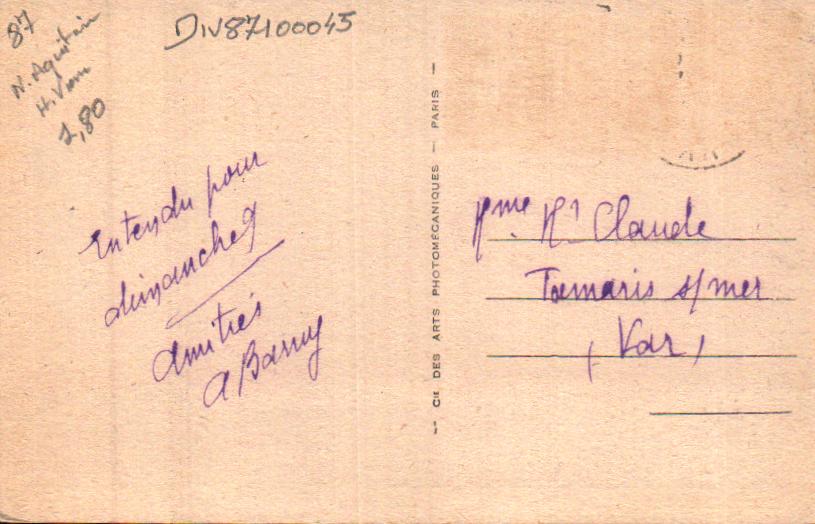 87
N. Aquitain
H. Vien
1,80
DIV87100045
Entendu pour
dimanche 9
Amitiés
A Barruy
-- Cie DES ARTS PHOTOMÉCANIQUES — PARIS —
Mme Hi Claude
Tamaris s/mer
(Var)